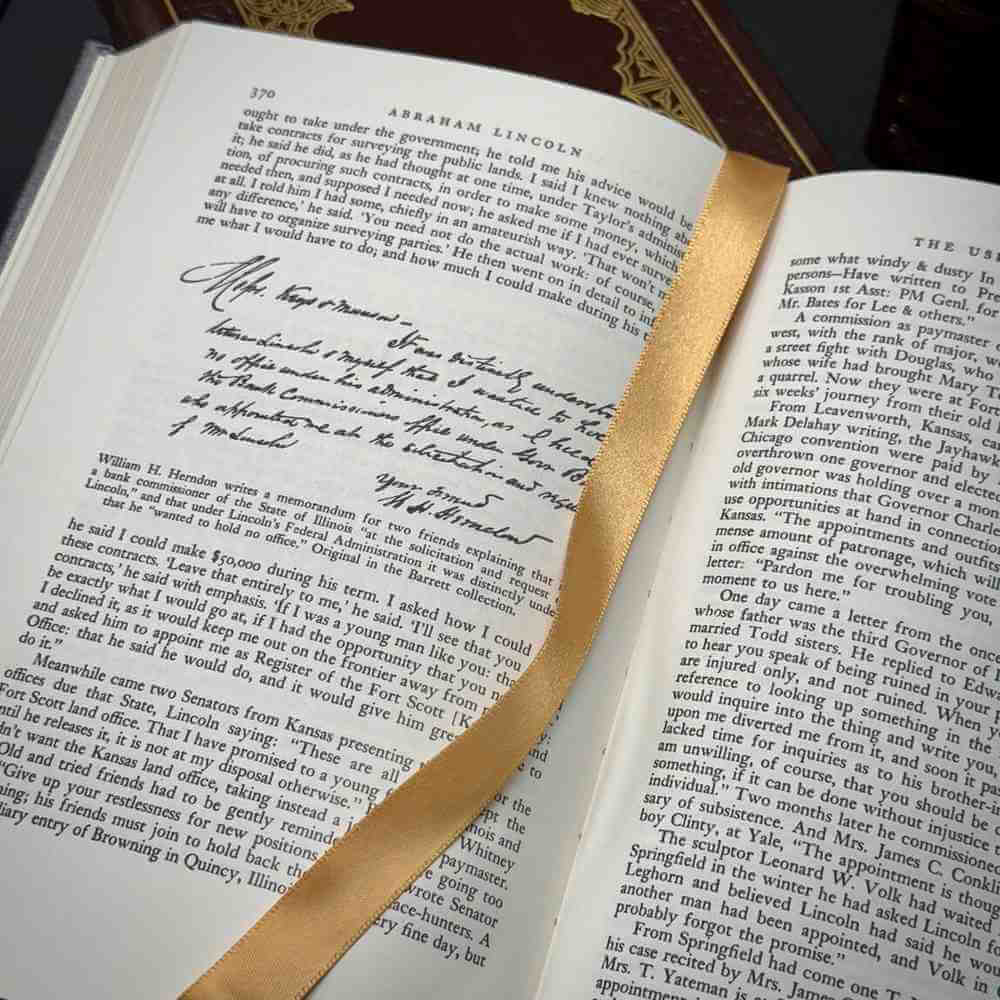 370
ABRAHAM LINCOLN
ought to take under the government; he told me his advice would be
take contracts for surveying the public lands. I said I knew nothing
it; he said he did, as he had thought at one time, under Taylor's
tion, of procuring such contracts, in order to make some money, which
needed then, and supposed I needed now; he asked me if I had ever
at all. I told him I had some, chiefly in an amateurish way. 'That won't
any difference,' he said. 'You need not do the actual work: of course,
will have to organize surveying parties.' He then went on in detail to
me what I would have to do; and how much I could make during his
It was distinctly
Lincoln & myself that I wanted to
no office under his administration, as I
the Bank Commissioners office under
who appointed me at the solicitation and
of Mr Lincoln
Your friend
W H Herndon
William H. Herndon writes a memorandum for two friends explaining that
a bank commissioner of the State of Illinois "at the solicitation and request
Lincoln," and that under Lincoln's Federal Administration it was distinctly
that he "wanted to hold no office." Original in the Barrett collection.
he said I could make $50,000 during his term. I asked how I could
these contracts. 'Leave that entirely to me,' he said. 'I'll see that you
contracts,' he said with emphasis. 'If I was a young man like you: that
be exactly what I would go at, if I had the opportunity that you
I declined it, as it would keep me out on the frontier away from
and asked him to appoint me as Register of the Fort Scott
Office: that he said he would do, and it would give him to
do it."
Meanwhile came two Senators from Kansas presenting for the
offices due that State, Lincoln saying: "These are all
Fort Scott land office. That I have promised to a young
until he releases it, it is not at my disposal otherwise." Whitney
want the Kansas land office, taking instead a paymaster.
Old and tried friends had to be gently going too
"Give up your restlessness for new positions wrote Senator
his friends must join to hold back
entry of Browning in Quincy, fine day, but
THE
some what windy & dusty In
persons—Have written to
Kasson 1st Asst: PM Genl. for
Mr. Bates for Lee & others."
A commission as paymaster
west, with the rank of major,
a street fight with Douglas, who
whose wife had brought Mary
a quarrel. Now they were at Fort
six weeks' journey from their old
From Leavenworth, Kansas,
Mark Delahay writing, the
Chicago convention were paid by
overthrown one governor and
old governor was holding over a
with intimations that Governor
use opportunities at hand in
Kansas. "The appointments and outfits
mense amount of patronage, which will
in office against the overwhelming vote
letter: "Pardon me for troubling you,
moment to us here."
One day came a letter from the once
whose father was the third Governor of
married Todd sisters. He replied to
to hear you speak of being ruined in your
are injured only, and not ruined. When
reference to looking up something in the
would inquire into the thing and write you,
upon me diverted me from it, and soon it
lacked time for inquiries as to his
am unwilling, of course, that you should be
something, if it can be done without injustice
individual." Two months later he commissioned
sary of subsistence. And Mrs. James C.
boy Clinty, at Yale, "The appointment is
The sculptor Leonard W. Volk had waited
Springfield in the winter he had asked Lincoln
Leghorn and believed Lincoln had said he
another man had been appointed, and Volk
probably forgot the promise."
From Springfield had come one
his case recited by Mrs.
Mrs. T. Yateman is